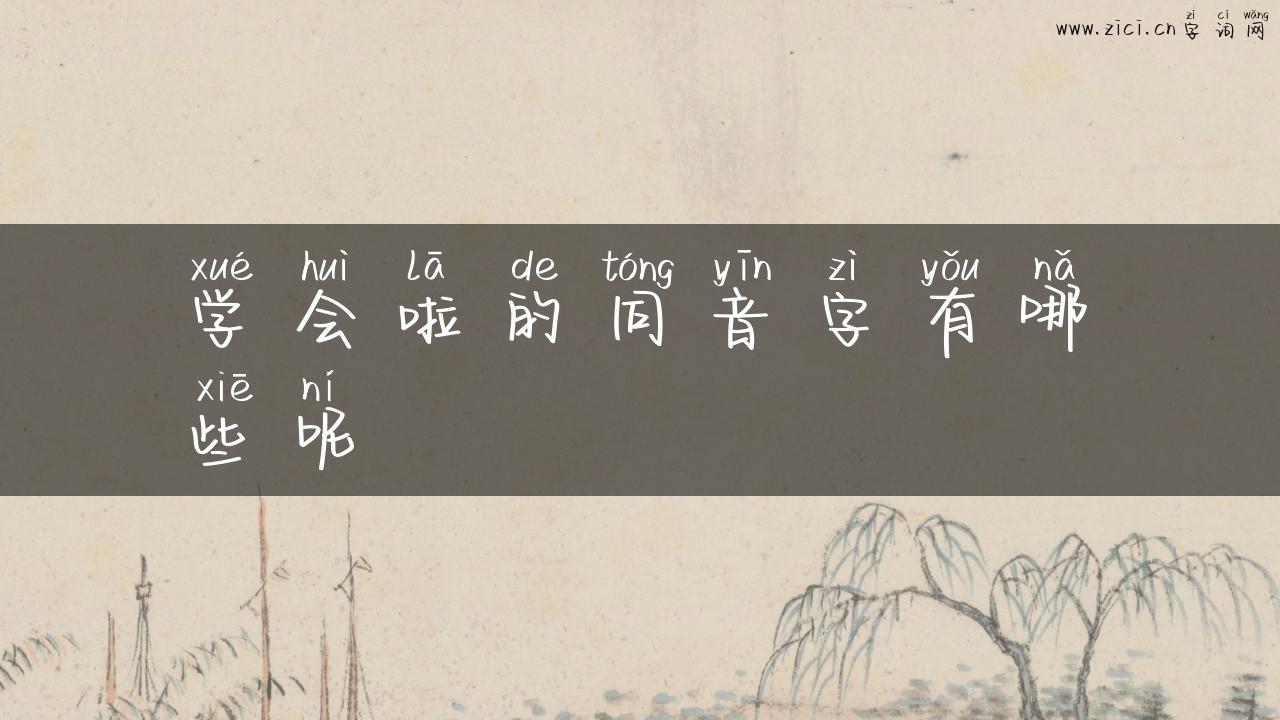 zì cí wǎng
www.zici.cn 字词网
xué huì lā de tóng yīn zì yǒu nǎ
学会啦的同音字有哪
xiē ní
些呢